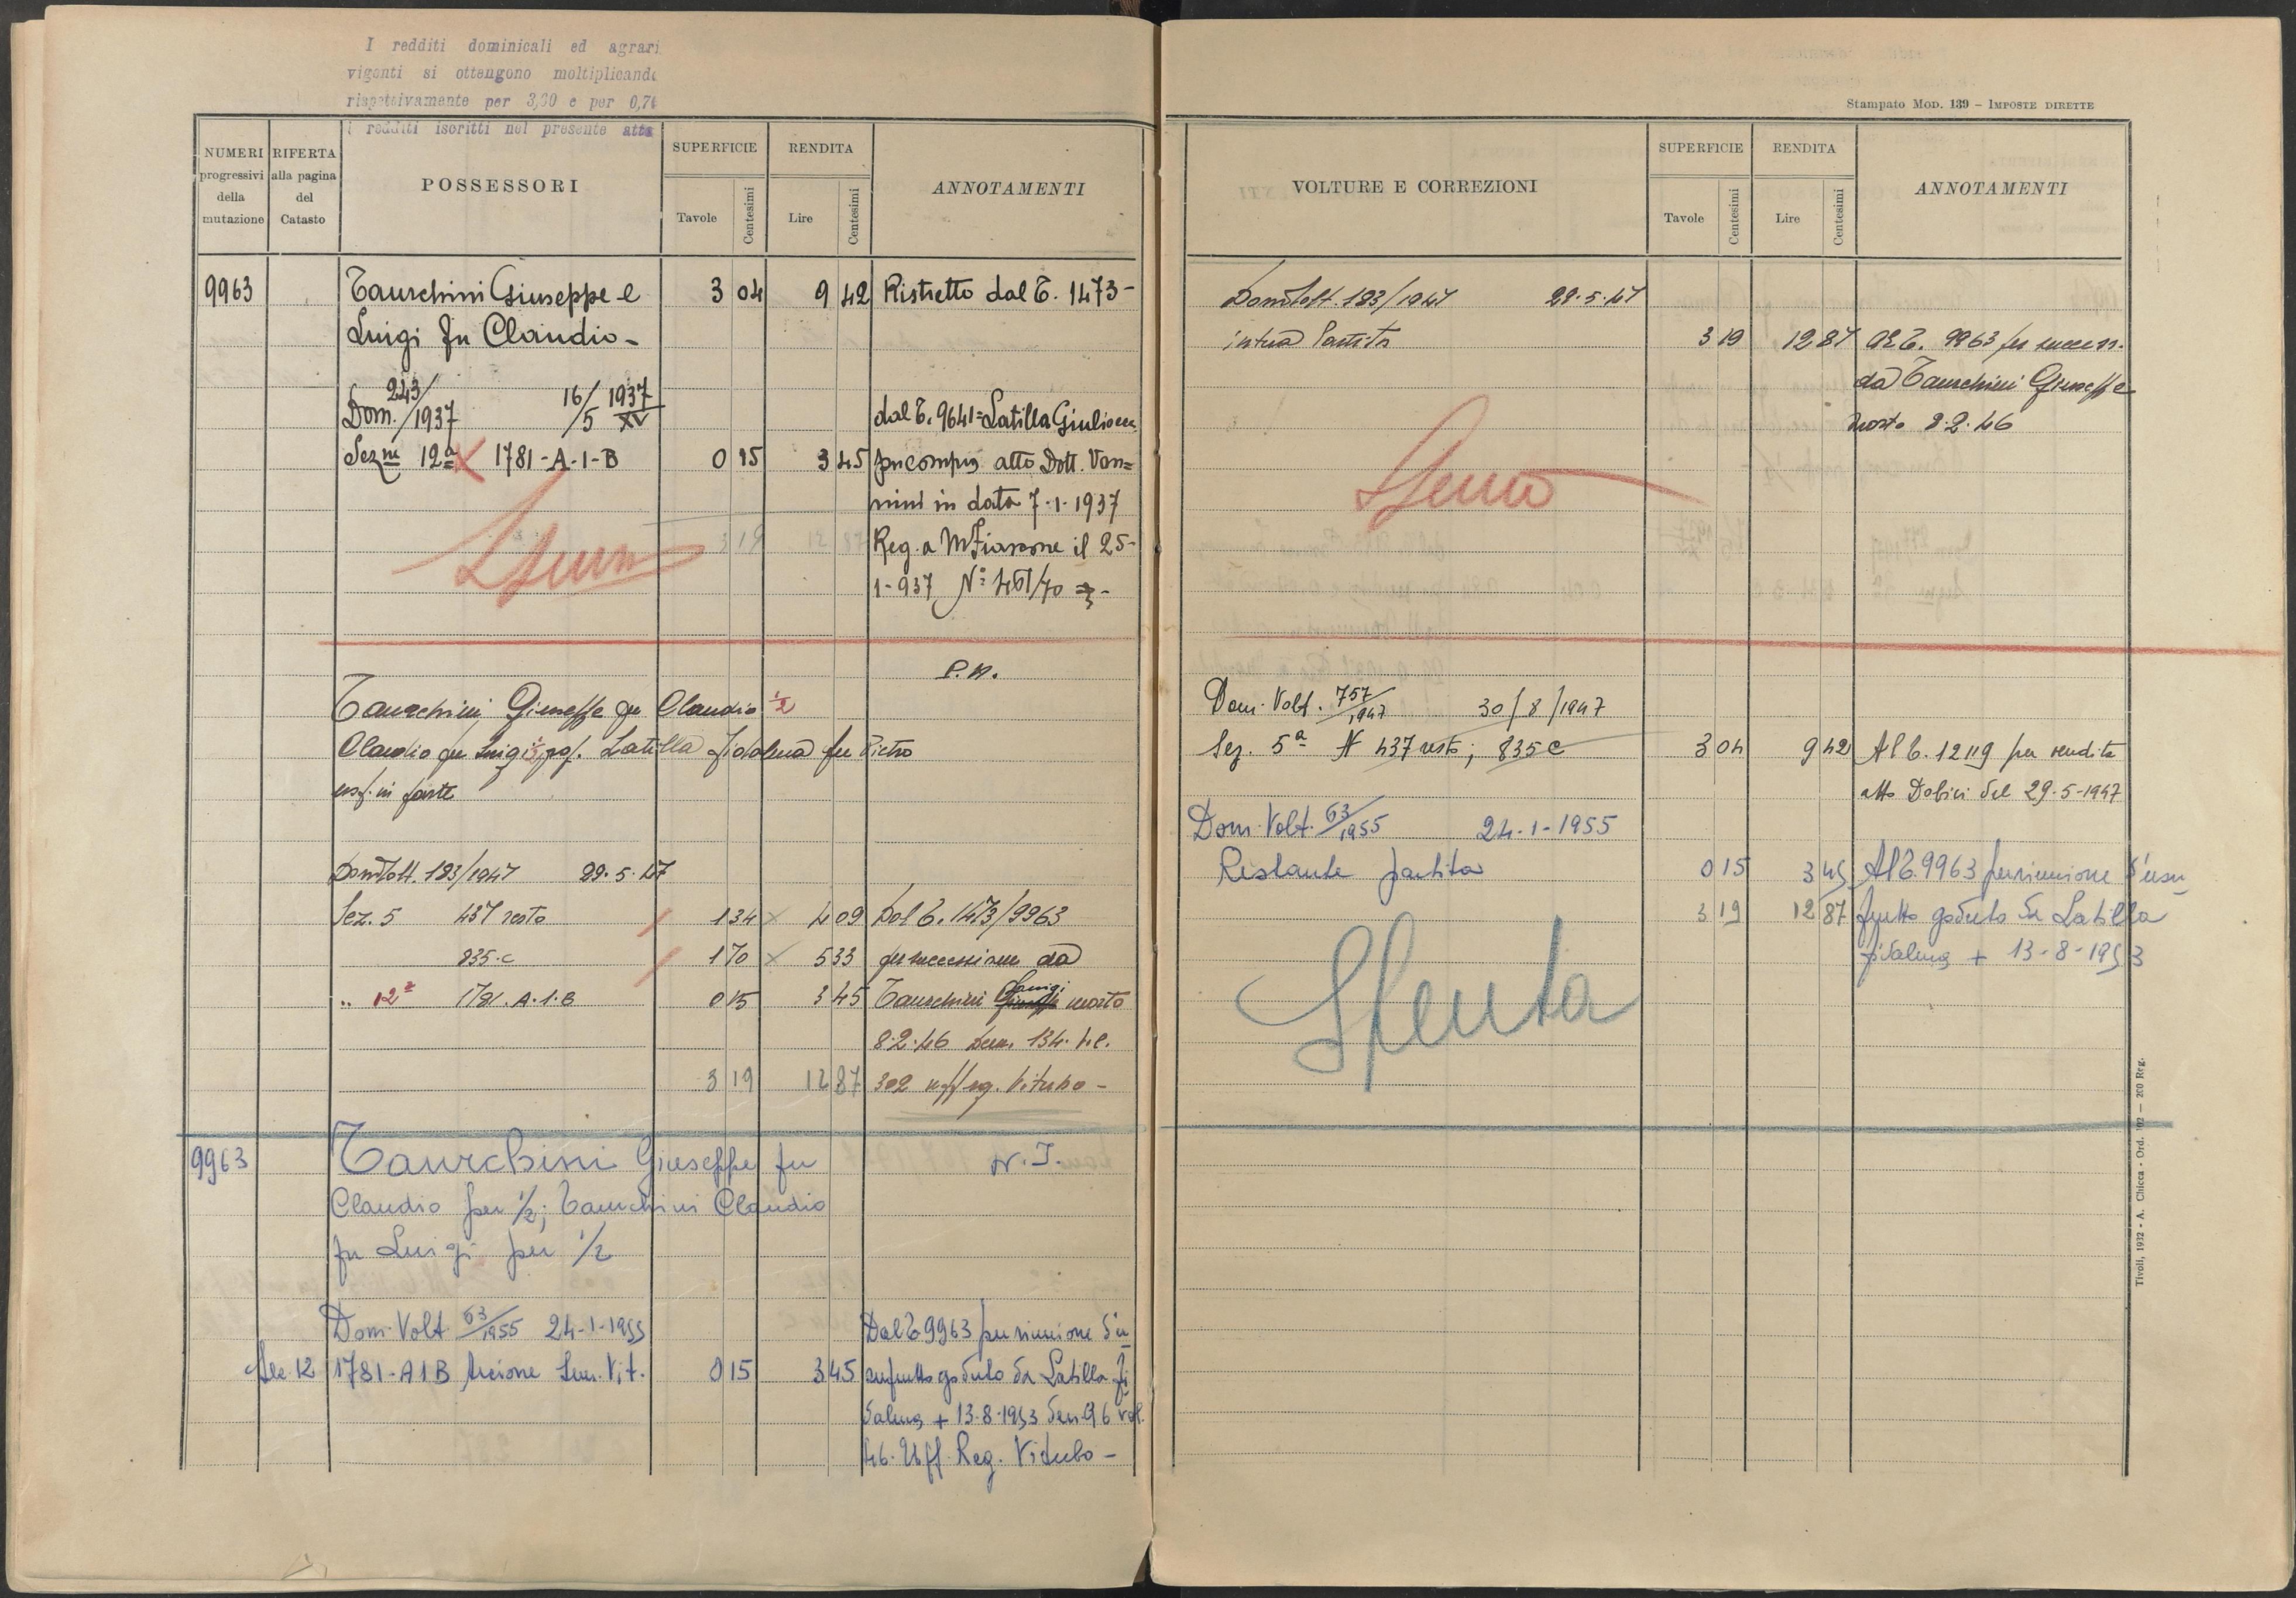 I redditi dominicali ed agrari
vigenti si ottengono moltiplicando
rispettivamente per 3,30 e per 0,74
i redditi iscritti nel presente atto
NUMERI progressivi della mutazione
RIFERTA alla pagina del Catasto
POSSESSORI
SUPERFICIE
Tavole Centesimi
RENDITA
Lire Centesimi
ANNOTAMENTI
9963 Taurchini Giuseppe e 3 04 9 42 Ristretto dal T. 1473-
Luigi fu Claudio-
Dom. 243/1937 16/5 1937 XV dal T. 9641=Latilla Giulio
Sezne 12a 1781-A-1-B 0 15 3 45 atto Dott. Van=
nini in data 7-1-1937
3 19 12 87 Reg. a Mfiascone il 25-
1-937 N° 461/70
Spenta
P.N.
Taurchini Giuseppe fu Claudio 1/2
Claudio fu Luigi 1/2 prop. Latilla Fidalma fu Pietro
usf. in parte
Dom Volt. 183/1947 29.5.47
Sez. 5 437 resto 1 34 4 09 Dal T. 1473/9963
835.c 1 70 5 33 per successione da
" 12a 1781.A.1.B 0 15 3 45 Taurchini Luigi morto
8.2.46 Den. 134
3 19 12 87 302 uff reg. Viterbo-
9963 Taurchini Giuseppe fu N.I.
Claudio per 1/2; Taurchini Claudio
fu Luigi per 1/2
Dom. Volt 63/1955 24-1-1955 Dal T 9963 per riunione d'u
Sez. 12 1781-A1B Sem. Vit. 0 15 3 45 sufrutto goduto da Latilla Fi
dalma + 13-8-1953 Den. 96 vol.
46. Uff. Reg. Viterbo-
Stampato Mod. 139 - Imposte dirette
VOLTURE E CORREZIONI
SUPERFICIE
Tavole Centesimi
RENDITA
Lire Centesimi
ANNOTAMENTI
Dom Volt. 183/1947 29.5.47
intera Partita 3 19 12 87 Al T. 9963 per success.
da Taurchini Giuseppe
morto 8.2.46
Spenta
Dom. Volt. 757/1947 30/8/1947
Sez. 5a N 437 resto; 835 c 3 04 9 42 Al T. 12119 per vendita
atto Dobici del 29-5-1947
Dom. Volt. 63/1955 24-1-1955
Restante partita 0 15 3 45 Al T. 9963 per riunione d'usu
3 19 12 87 frutto goduto da Latilla
Fidalma + 13-8-1953
Spenta
Tivoli, 1932 - A. Chicca - Ord. 192 — 200 Reg.